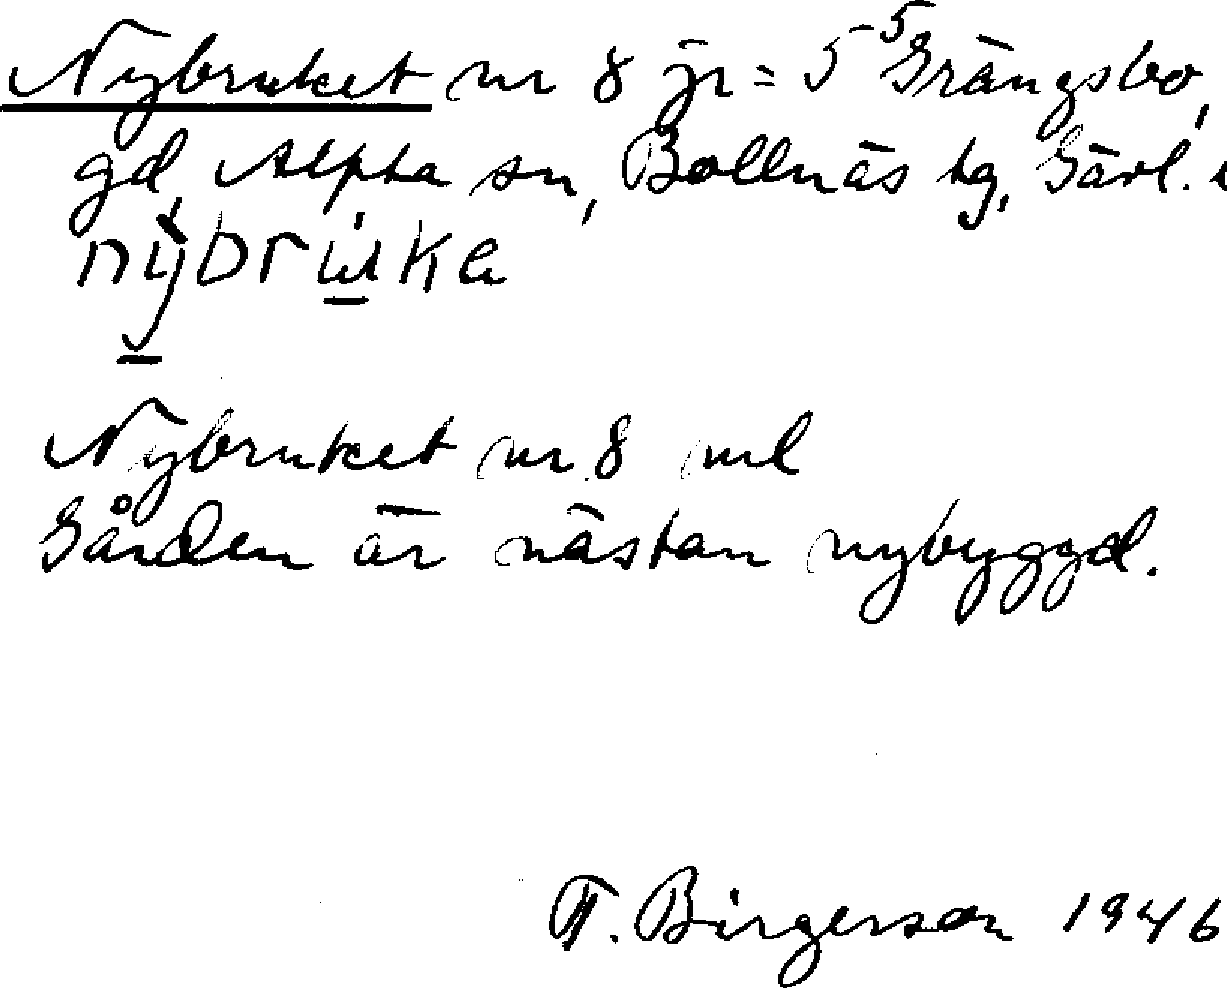 Nybruket nr 8 jr = 5⁵ Grängsbo,
gd, Alfta sn, Bollnäs tg, Gävl.
nỳbrùka
Nybruket nr 8 ml
Gården är nästan nybyggd.
F. Birgerson 1946